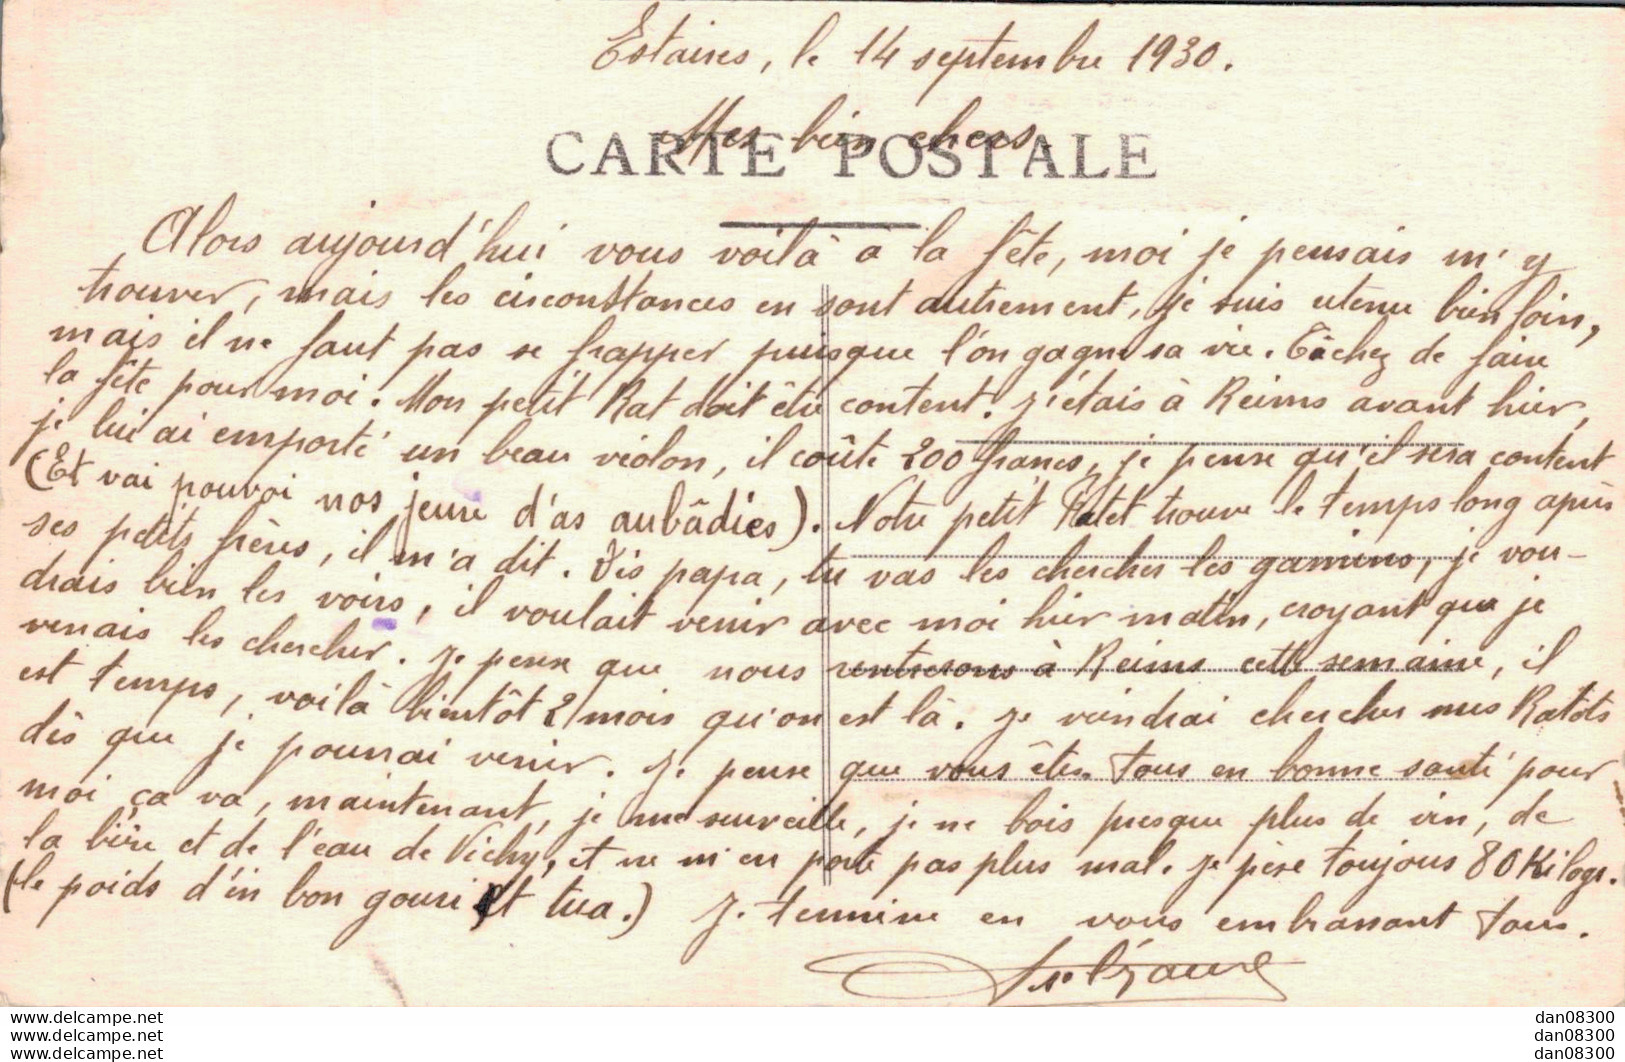 Estaires, le 14 septembre 1930.
Mes bien chers.
CARTE POSTALE
Alors aujourd'hui vous voilà à la fête, moi je pensais m'y
trouver, mais les circonstances en sont autrement, je suis retenu bien loin,
mais il ne faut pas se frapper puisque l'on gagne sa vie. Tâchez de faire
la fête pour moi. Mon petit Rat doit être content. J'étais à Reims avant hier,
je lui ai emporté un beau violon, il coûte 200 francs, je pense qu'il sera content
(Et vai pouvoi nos jeuïe d'as aubâdies). Notre petit Ratet trouve le temps long après
ses petits frères, il m'a dit. Dis papa, tu vas les chercher les gamins, je vou-
drais bien les voirs, il voulait venir avec moi hier matin, croyant que je
venais les chercher. Je pense que nous rentrerons à Reims cette semaine, il
est temps, voilà bientôt 2 mois qu'on est là. Je viendrai chercher mes Ratots
dès que je pourrai venir. Je pense que vous êtes tous en bonne santé pour
moi ça va, maintenant, je me surveille, je ne bois presque plus de vin, de
la bière et de l'eau de Vichy, et ne m'en porte pas plus mal. Je pèse toujours 80 Kilogs.
(le poids d'in bon gouri et tua.) Je termine en vous embrassant tous.
www.delcampe.net
www.delcampe.net
www.delcampe.net
dan08300
dan08300
dan08300